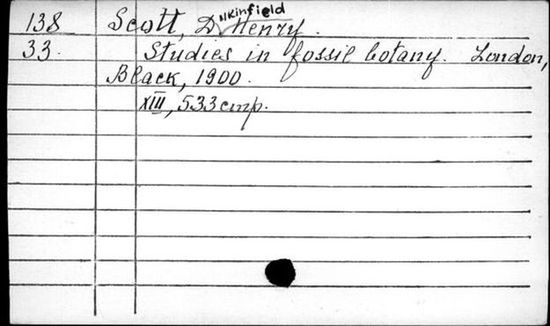 138 Scott, Dunkinfield Henry.
33. Studies in fossil botany. London,
Black, 1900.
XIII, 533 стр.